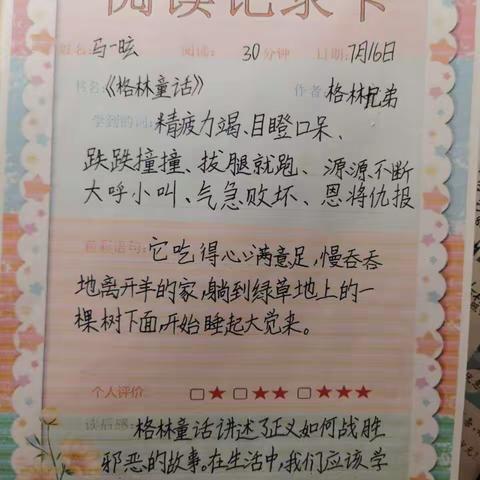 阅读记录卡
姓名:马一眩 阅读:30分钟 日期:7月16日
书名:《格林童话》 作者:格林兄弟
学到的词:精疲力竭、目瞪口呆、
跌跌撞撞、拔腿就跑、源源不断
大呼小叫、气急败坏、恩将仇报
精彩语句:它吃得心心满意足,慢吞吞
地离开羊的家,躺到绿草地上的一
棵树下面,开始睡起大觉来。
个人评价: □★ □★★ □★★★
读后感:格林童话讲述了正义如何战胜
邪恶的故事。在生活中,我们应该学